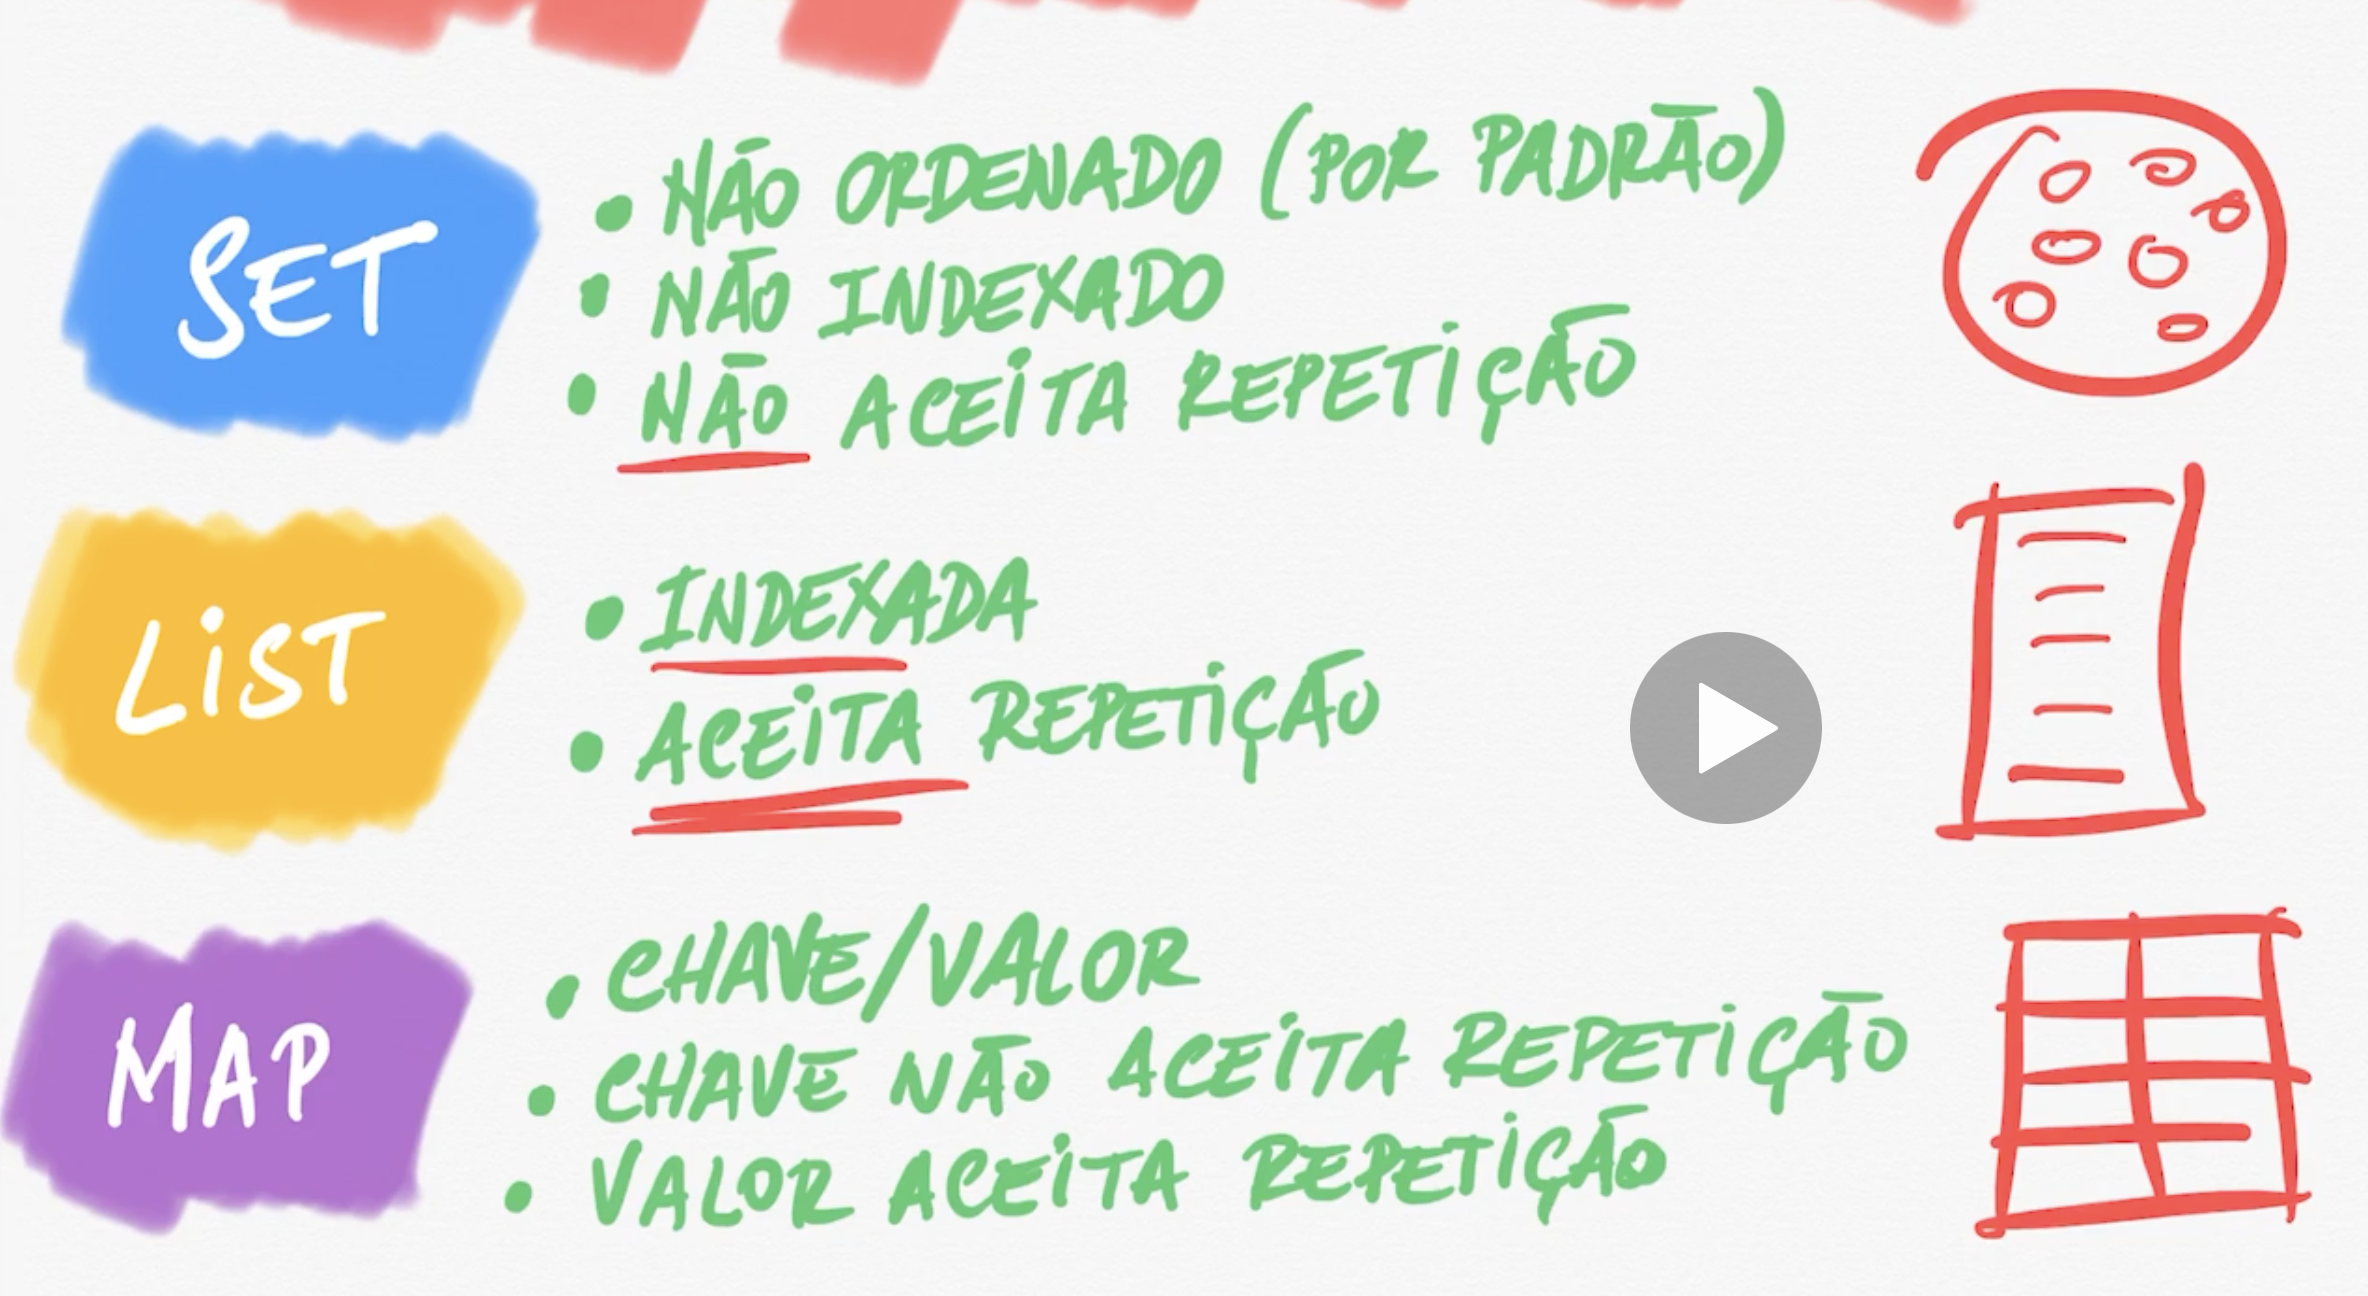 SET
• NÃO ORDENADO (POR PADRÃO)
• NÃO INDEXADO
• NÃO ACEITA REPETIÇÃO
LIST
• INDEXADA
• ACEITA REPETIÇÃO
MAP
• CHAVE/VALOR
• CHAVE NÃO ACEITA REPETIÇÃO
• VALOR ACEITA REPETIÇÃO